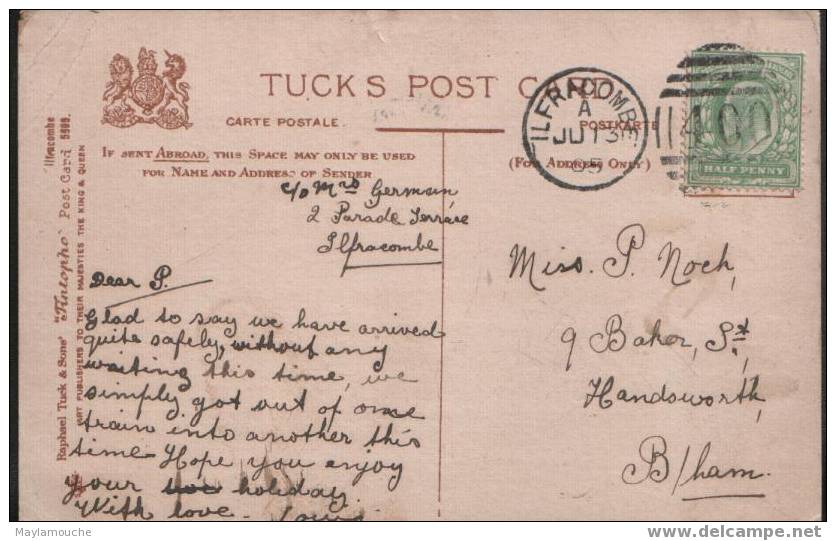 TUCK'S POST CARD
CARTE POSTALE.
POSTKARTE
IF SENT ABROAD, THIS SPACE MAY ONLY BE USED
FOR NAME AND ADDRESS OF SENDER
(FOR ADDRESS ONLY)
ILFRACOMBE
A
JU 13
05
400
HALF PENNY
c/o Mrs German
2 Parade Terrace
Ilfracombe
Dear P.
Glad to say we have arrived
quite safely, without any
waiting this time, we
simply got out of one
train into another this
time. Hope you enjoy
your holiday.
With love.
Miss. P. Noch,
9 Baker, St,
Handsworth,
B/ham.
Raphael Tuck & Sons' "Tintopho" Post Card 5899. Ilfracombe
ART PUBLISHERS TO THEIR MAJESTIES THE KING & QUEEN
Maylamouche
www.delcampe.net